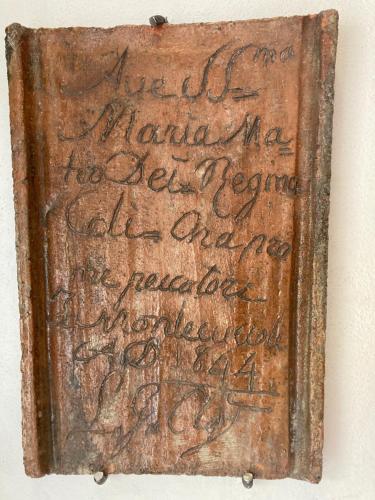 Ave SS=ma
Maria Ma=
Dei= Regina
Celi= Ora pro
peccatori
Montecuccoli
A.D. 1844.
L. G.